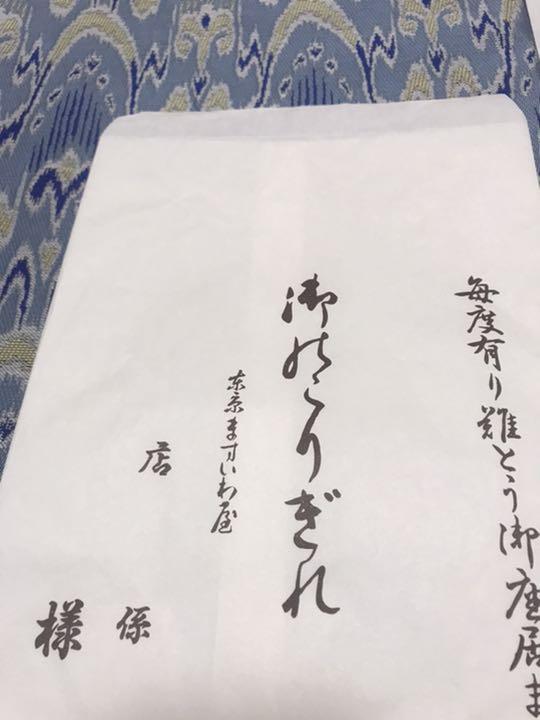 毎度有り難とう御座居ま
御のこりぎれ
東京ますいわ屋
店
係
様